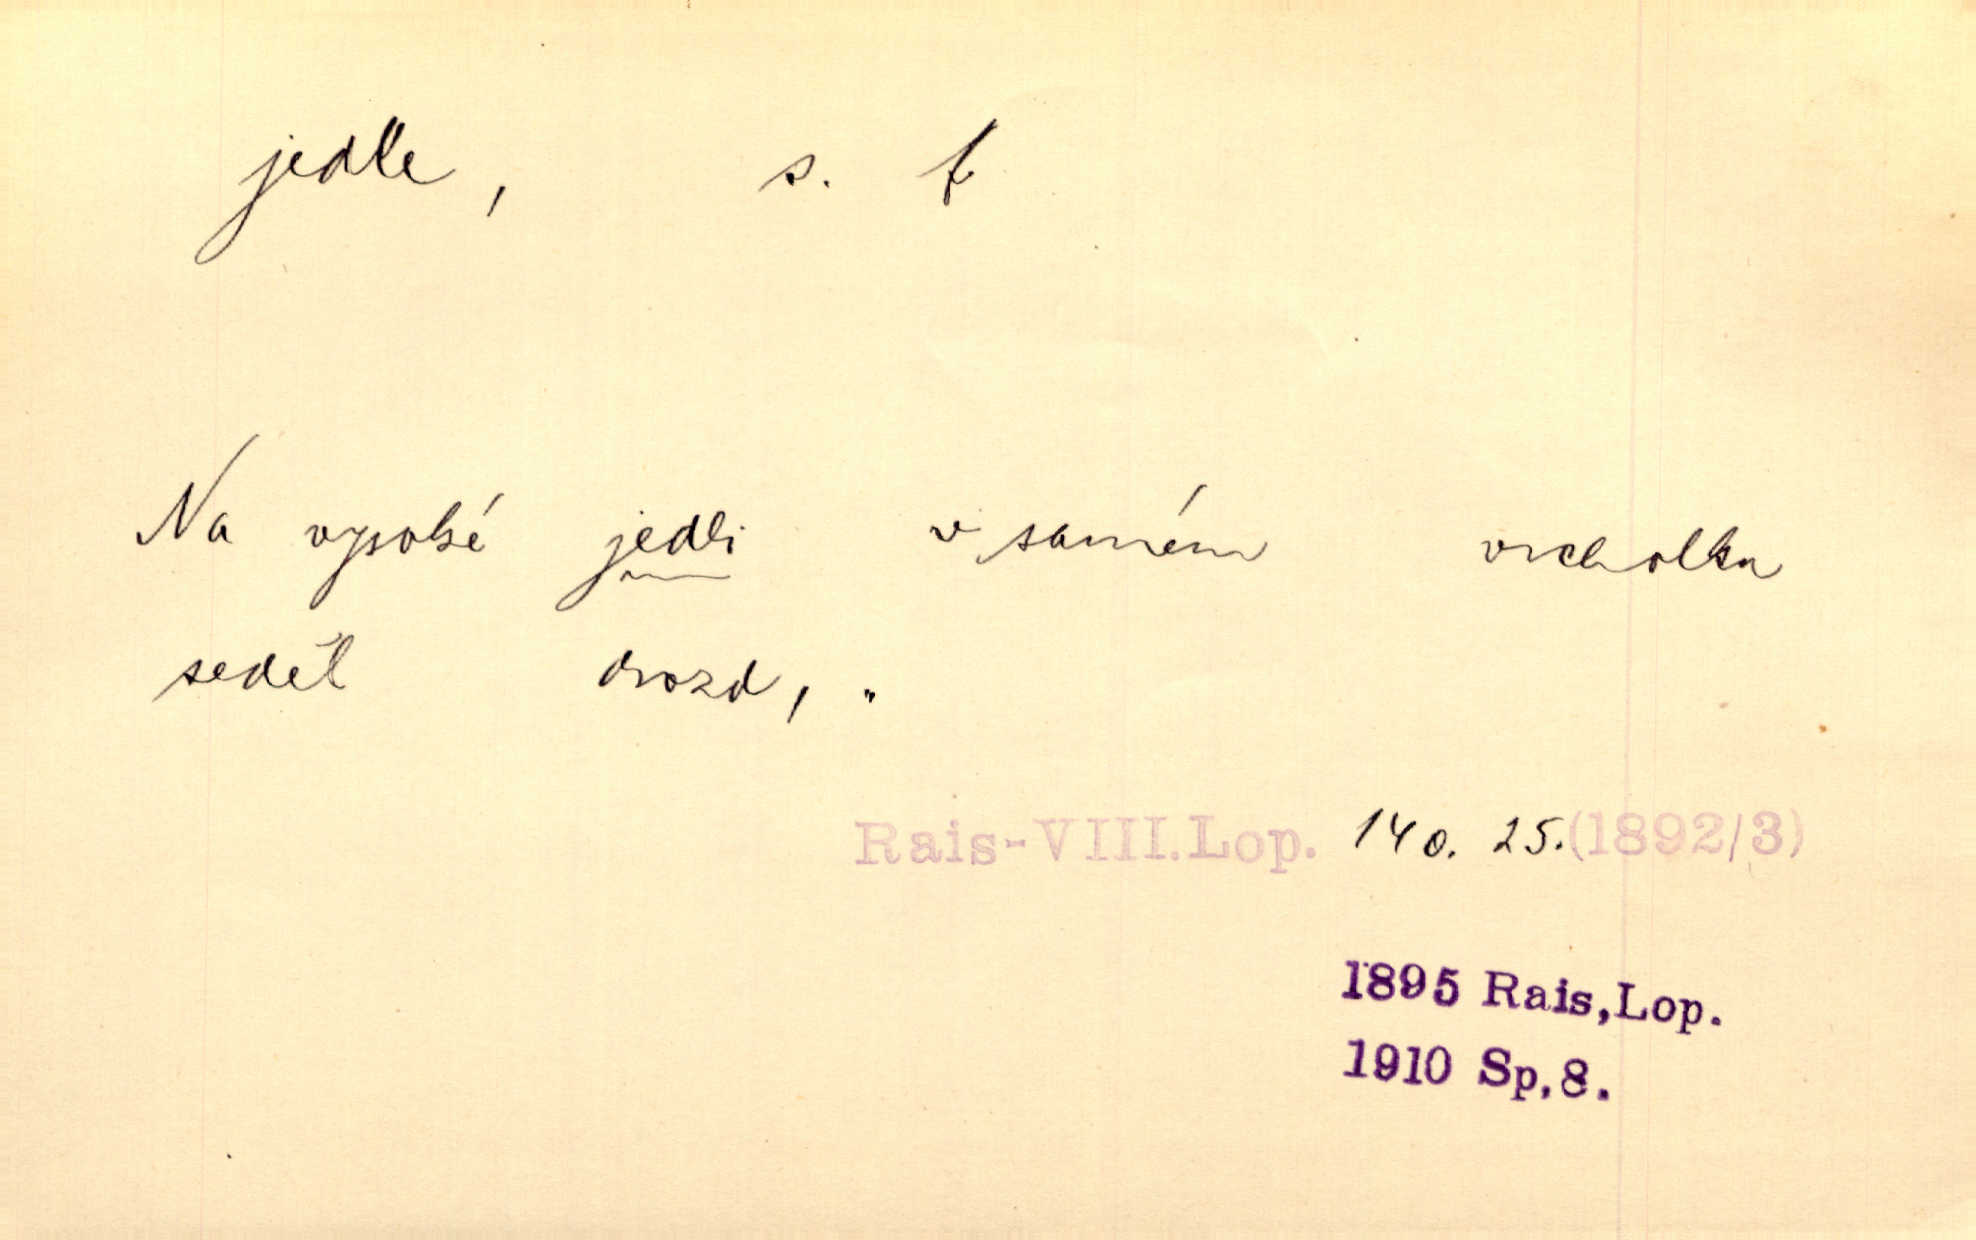 jedle, s. f
Na vysoké jedli v samém vrcholku
seděl drozd, "
Rais-VIII.Lop. 140. 25.(1892/3)
1895 Rais,Lop.
1910 Sp,8.